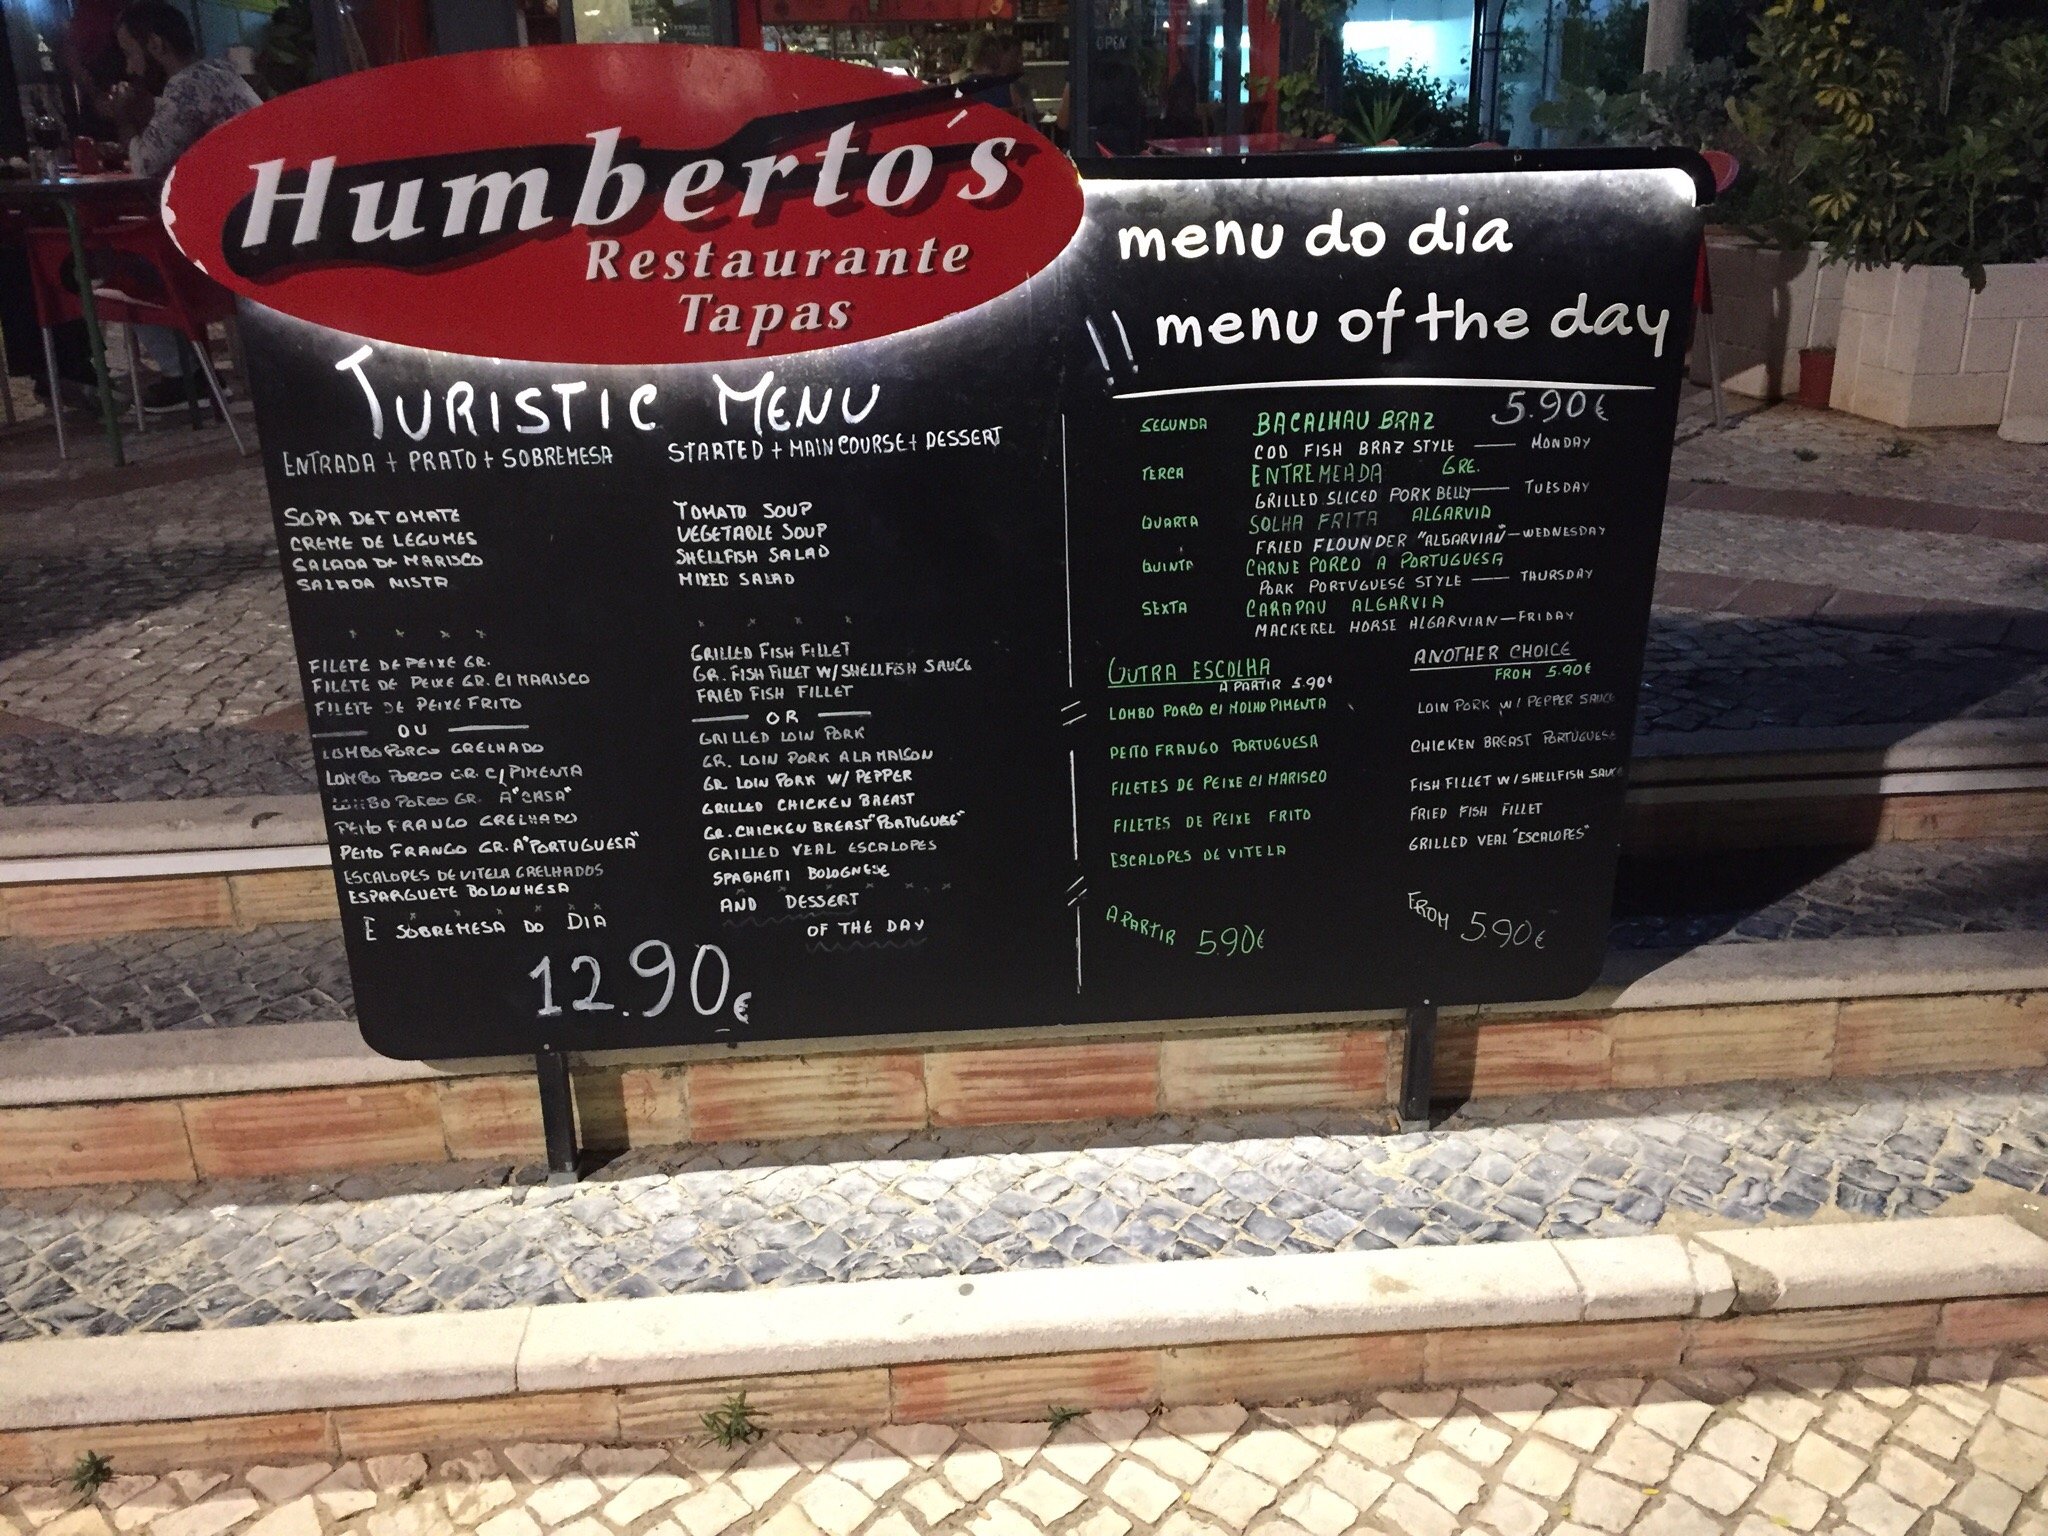 Humberto's
Restaurante
Tapas
TURISTIC MENU
ENTRADA + PRATO + SOBREMESA
STARTED + MAIN COURSE + DESSERT
SOPA DE TOMATE
CREME DE LEGUMES
SALADA DE MARISCO
SALADA MISTA
TOMATO SOUP
VEGETABLE SOUP
SHELLFISH SALAD
MIXED SALAD
FILETE DE PEIXE GR.
FILETE DE PEIXE GR. C/ MARISCO
FILETE DE PEIXE FRITO
OU
LOMBO PORCO GRELHADO
LOMBO PORCO GR. C/ PIMENTA
LOMBO PORCO GR. A "CASA"
PEITO FRANGO GRELHADO
PEITO FRANGO GR. A "PORTUGUESA"
ESCALOPES DE VITELA GRELHADOS
ESPARGUETE BOLONHESA
E SOBREMESA DO DIA
GRILLED FISH FILLET
GR. FISH FILLET W/ SHELLFISH SAUCE
FRIED FISH FILLET
OR
GRILLED LOIN PORK
GR. LOIN PORK A LA MAISON
GR. LOIN PORK W/ PEPPER
GRILLED CHICKEN BREAST
GR. CHICKEN BREAST "PORTUGUESE"
GRILLED VEAL ESCALOPES
SPAGHETTI BOLOGNESE
AND DESSERT
OF THE DAY
12.90€
menu do dia
!! menu of the day
5.90€
SEGUNDA BACALHAU BRAZ
COD FISH BRAZ STYLE — MONDAY
TERCA ENTREMEADA GRE.
GRILLED SLICED PORK BELLY — TUESDAY
QUARTA SOLHA FRITA ALGARVIA
FRIED FLOUNDER "ALGARVIAN" — WEDNESDAY
QUINTA CARNE PORCO A PORTUGUESA
PORK PORTUGUESE STYLE — THURSDAY
SEXTA CARAPAU ALGARVIA
MACKEREL HORSE ALGARVIAN — FRIDAY
OUTRA ESCOLHA
A PARTIR 5.90€
LOMBO PORCO C/ MOLHO PIMENTA
PEITO FRANGO PORTUGUESA
FILETES DE PEIXE C/ MARISCO
FILETES DE PEIXE FRITO
ESCALOPES DE VITELA
A PARTIR 5.90€
ANOTHER CHOICE
FROM 5.90€
LOIN PORK W/ PEPPER SAUCE
CHICKEN BREAST PORTUGUESE
FISH FILLET W/ SHELLFISH SAUCE
FRIED FISH FILLET
GRILLED VEAL "ESCALOPES"
FROM 5.90€
OPEN